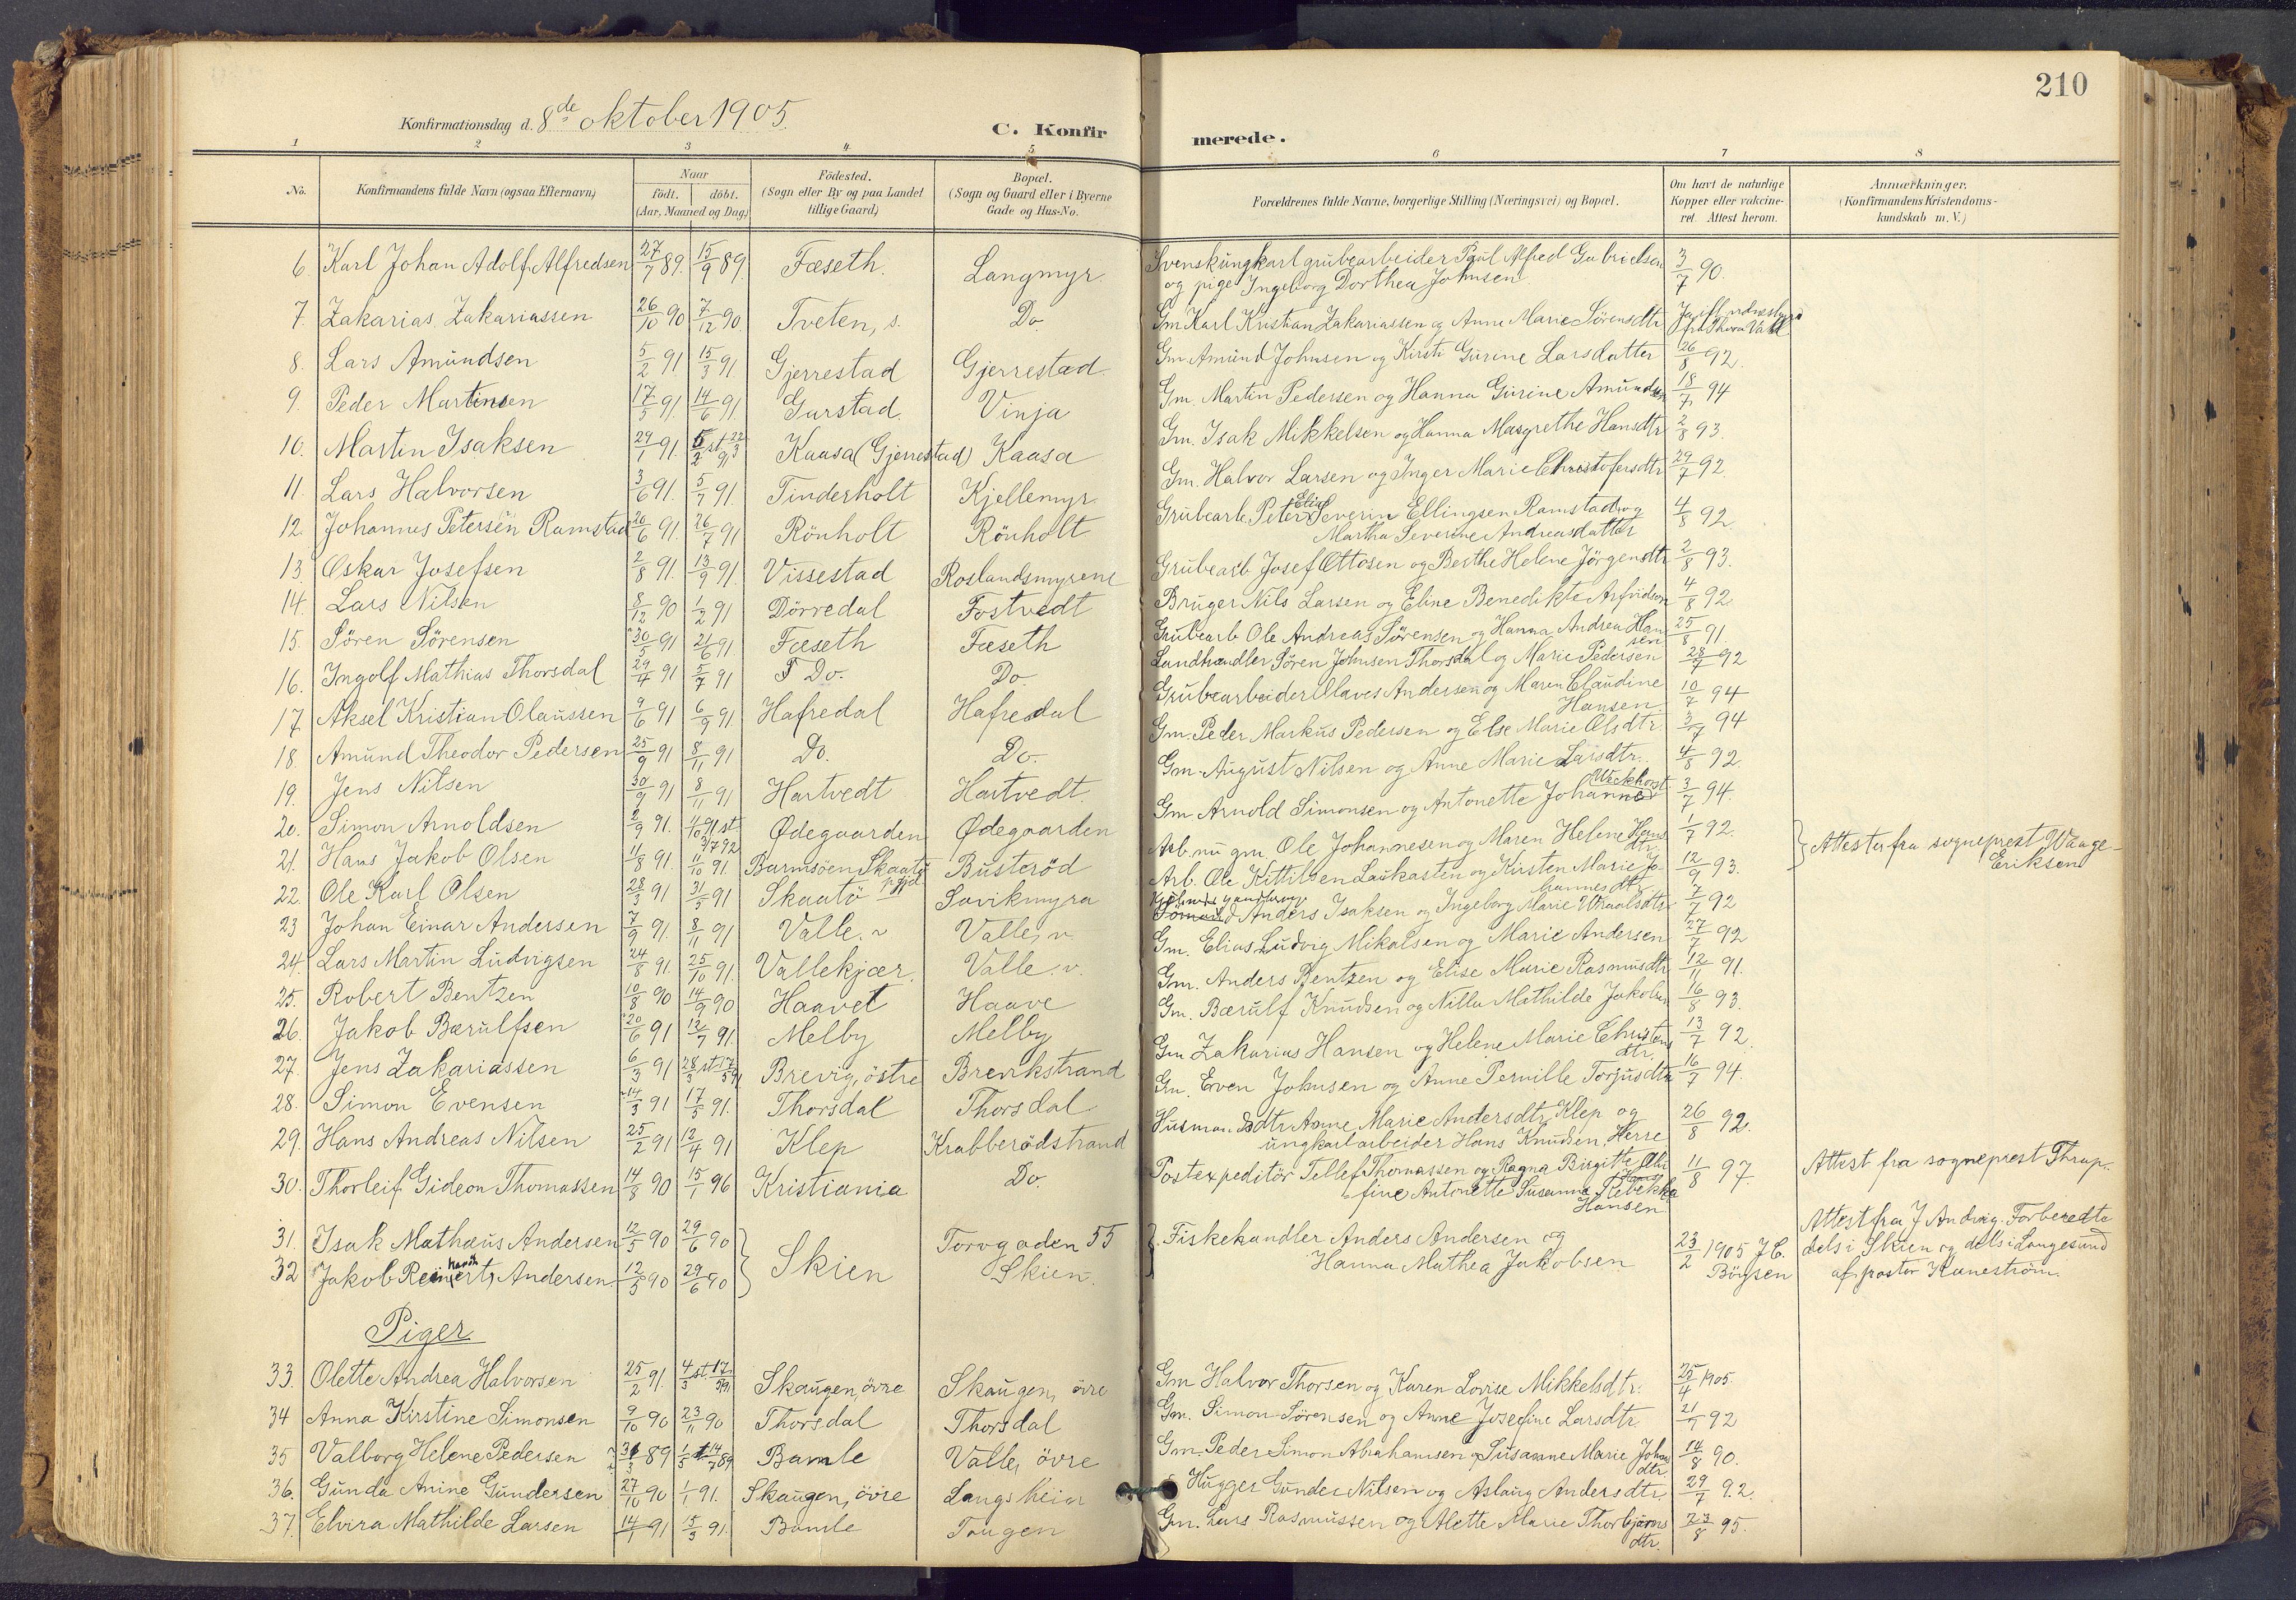 210
Konfirmationsdag d. 8de oktober 1905.
C. Konfirmerede.
1 2 3 4 5 6 7 8
No. Konfirmandens fulde Navn (ogsaa Efternavn) Naar födt. döbt. (Aar, Maaned og Dag) Födested. (Sogn eller By og paa Landet tillige Gaard) Bopæl. (Sogn og Gaard eller i Byerne Gade og Hus-No. Forældrenes fulde Navne, borgerlige Stilling (Næringsvei) og Bopæl. Om havt de naturlige Kopper eller vakcineret. Attest herom. Anmærkninger. (Konfirmandens Kristendomskundskab m. V.)
6. Karl Johan Adolf Alfredsen 27/7 89. 15/9 89. Fæseth. Langmyr. Svensk ungkarl grubearbeider Paul Alfred Gabrielsen og pige Ingeborg Dorthea Johnsen 3/7 90.
7. Zakarias Zakariassen 26/10 90 7/12 90 Tveten, s. Do. Gm Karl Kristian Zakariassen og Anne Marie Sörensdtr
8. Lars Amundsen 5/2 91. 15/3 91 Gjerrestad Gjerrestad. Gm Amund Johnsen og Kirsti Gurine Larsdatter 26/8 92.
9. Peder Martinsen 17/5 91. 14/6 91 Gurstad. Vinja Gm. Martin Pedersen og Hanna Gurine Amundsen 18/7 94
10. Martin Isaksen 29/1 91. 5/2 st 22/3 91 Kaasa (Gjerrestad) Kaasa Gm. Isak Mikkelsen og Hanna Margrethe Hansdtr 2/8 93.
11. Lars Halvorsen 3/6 91. 5/7 91. Tinderholt Kjellemyr Gm. Halvor Larsen og Inger Marie Christofersdtr 29/7 92.
12. Johannes Petersen Ramstad 20/6 91. 26/7 91 Rönholt Rönholt Grubearb. Peter Elias Severin Ellingsen Ramstad og Martha Severine Andreasdatter 4/8 92
13. Oskar Josefsen 2/8 91. 13/9 91. Vissestad Roslandsmyrene Grubearb Josef Ottosen og Berthe Helene Jörgensdtr 2/8 93.
14. Lars Nilsen 8/12 90 1/2 91 Dörredal Fostvedt Bruger Nils Larsen og Eline Benedikte Arfvidson 4/8 92
15. Sören Sörensen 30/5 91 21/6 91 Fæseth Fæseth Grubearb Ole Andreas Sörensen og Hanna Andrea Hansen 25/8 91.
16. Ingolf Mathias Thorsdal 29/4 91 5/7 91 Do. Do. Landhandler Sören Johnsen Thorsdal og Marie Pedersen 28/7 92
17. Aksel Kristian Olaussen 9/6 91 6/9 91 Hafredal Hafredal Grubearbeider Olaves Andersen og Maren Claudine Hansen 10/7 94
18. Amund Theodor Pedersen 25/9 91 8/11 91 Do. Do. Gm. Peder Markus Pedersen og Else Marie Olsdtr. 3/7 94
19. Jens Nilsen 30/9 91 8/11 91 Hartvedt Hartvedt. Gm. August Nilsen og Anne Marie Larsdtr. 4/8 92.
20. Simon Arnoldsen 2/9 91. 4/10 91 st 3/7 92 Ødegaarden Ødegaarden Gm Arnold Simonsen og Antonette Johanne 3/7 94.
21. Hans Jakob Olsen 11/8 91. 11/10 91. Barmsöen Skaatö p.gjd Busteröd Arb. nu gm. Ole Johannesen og Maren Helene Hansdtr. 1/7 92. } Attester fra sogneprest Waage-Eriksen
22. Ole Karl Olsen 28/3 91 31/5 91 Skaatö Savikmyra Arb. Ole Kittilsen Laukasten og Kirsten Marie Johannesdtr. 12/9 93.
23 Johan Einar Andersen 7/9 91. 8/11 91 Valle. v Valle, v Anders Isaksen og Ingeborg Marie 7/7 92
24. Lars Martin Ludvigsen 24/8 91. 25/10 91. Vallekjær. Valle. v. Gm. Elias Ludvig Mikalsen og Marie Andersen 27/7 92
25. Robert Bentzen 10/8 90 14/9 90 Haavet Haave Gm. Anders Bentzen og Elise Marie Rasmusdtr 12/11 91.
26. Jakob Bærulfsen 20/6 91 12/7 91. Melby Melby Gm. Bærulf Knudsen og Nilla Mathilde Jakobsen 16/8 93.
27. Jens Zakariassen 6/3 91 28/3 st 17/5 91 Brevig, östre Brevikstrand Gm Zakarias Hansen og Helene Marie Christensdtr. 13/7 92.
28. Simon Evensen 14/3 91 17/5 91. Thorsdal Thorsdal Gm. Even Johnsen og Anne Pernille Torjusdtr 16/7 94.
29. Hans Andreas Nilsen 25/2 91 12/4 91 Klep Krabberödstrand Husmandsdtr Anne Marie Andersdtr, Klep og ungkarl arbeider Hans Knudsen, Herre 26/8 92.
30. Thorleif Gideon Thomassen 14/8 90 15/1 96 Kristiania Do. Postexpeditör Tellef Thomassen og Ragna Birgitte Othifine Antonette Susanna Rebekka Hansen 11/8 97 Attest fra sogneprest Thrap.
31. Isak Mathæus Andersen 12/5 90 29/6 90 } Skien Torvgaden 55 Skien. } Fiskehandler Anders Andersen og Hanna Mathea Jakobsen 23/2 1905 J C. Böysen Attest fra J Andvig. Forberedte dels i Skien og dels i Langesund af pastor Kaneström.
32 Jakob Reinert Andersen 12/5 90 29/6 90
Piger
33. Olette Andrea Halvorsen 25/2 91. 4/3 st 17/5 91 Skaugen, övre Skaugen, övre Gm Halvor Thorsen og Karen Lovise Mikkelsdtr. 25/4 1905.
34 Anna Kirstine Simonsen 9/10 90 23/11 90 Thorsdal Thorsdal Gm. Simon Sörensen og Anne Josefine Larsdtr. 21/7 92
35 Valborg Helene Pedersen 31/3 89 1/5 14/7 89 Bamle Valle, övre Gm. Peder Simon Abrahamsen og Susanne Marie Johnsdtr 14/8 90.
36. Gunda Anine Gundersen 27/10 90 1/1 91. Skaugen, övre Langsheia Hugger Gunder Nilsen og Aslaug Andersdtr. 29/7 92.
37. Elvira Mathilde Larsen 14/1 91 15/3 91. Bamle Tangen Gm. Lars Rasmussen og Alette Marie Thorbjörnsdtr. 23/8 95.